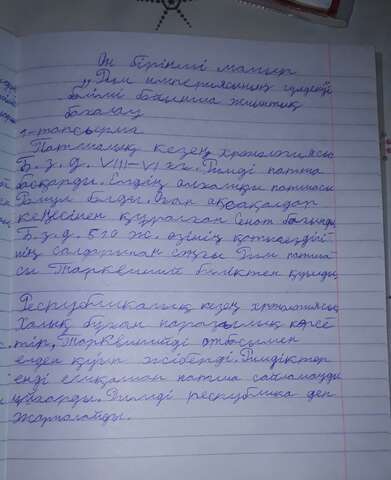 Он бірінші мамыр
"Рим империясының гүлденуі
бөлімі бойынша жиынтық
бағалау
1-тапсырма
Патшалық кезең хронологиясы
Б.з.д. VIII-VI ғғ. Римді патша
басқарды. Елдің алғашқы патшасы
Ромул болды. Оған ақсақалдар
кеңесінен құралған Сенат бағынды
Б.з.д. 510 ж. өзінің қатыгездігі-
нің салдарынан соңғы Рим патша-
сы Тарквиний биліктен қуылды

Республикалық кезең хронологиясы
Халық бұған наразылық көрсе-
тіп, Тарквинийді отбасымен
елден қуып жіберді. Римдіктер
енді ешқашан патша сайламауды
ұйғарды. Римді республика деп
жариялайды.